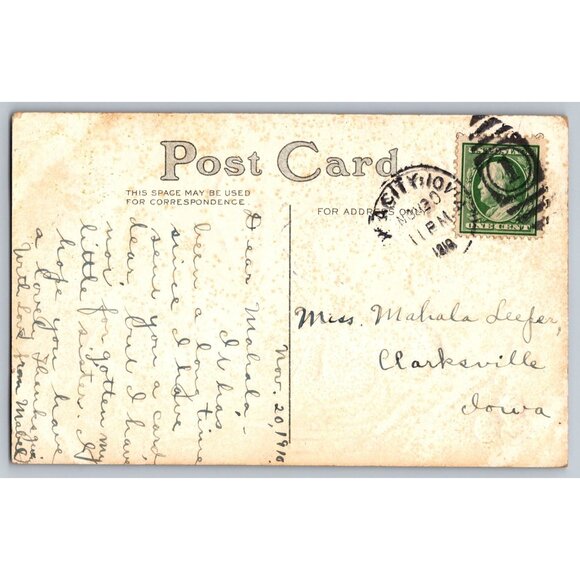 Post Card
THIS SPACE MAY BE USED
FOR CORRESPONDENCE
FOR ADDRESS ONLY
CITY, IOWA
NOV 20
11 PM
1910
ONE CENT
Miss. Mahala Leefer,
Clarksville
Iowa
Nov. 20, 1910
Dear Mahala -
It has
been a long time
since I have
sent you a card
dear, but I have
not forgotten my
little sister. I
hope you have
a lovely Thanksgiv
With love from Mabel